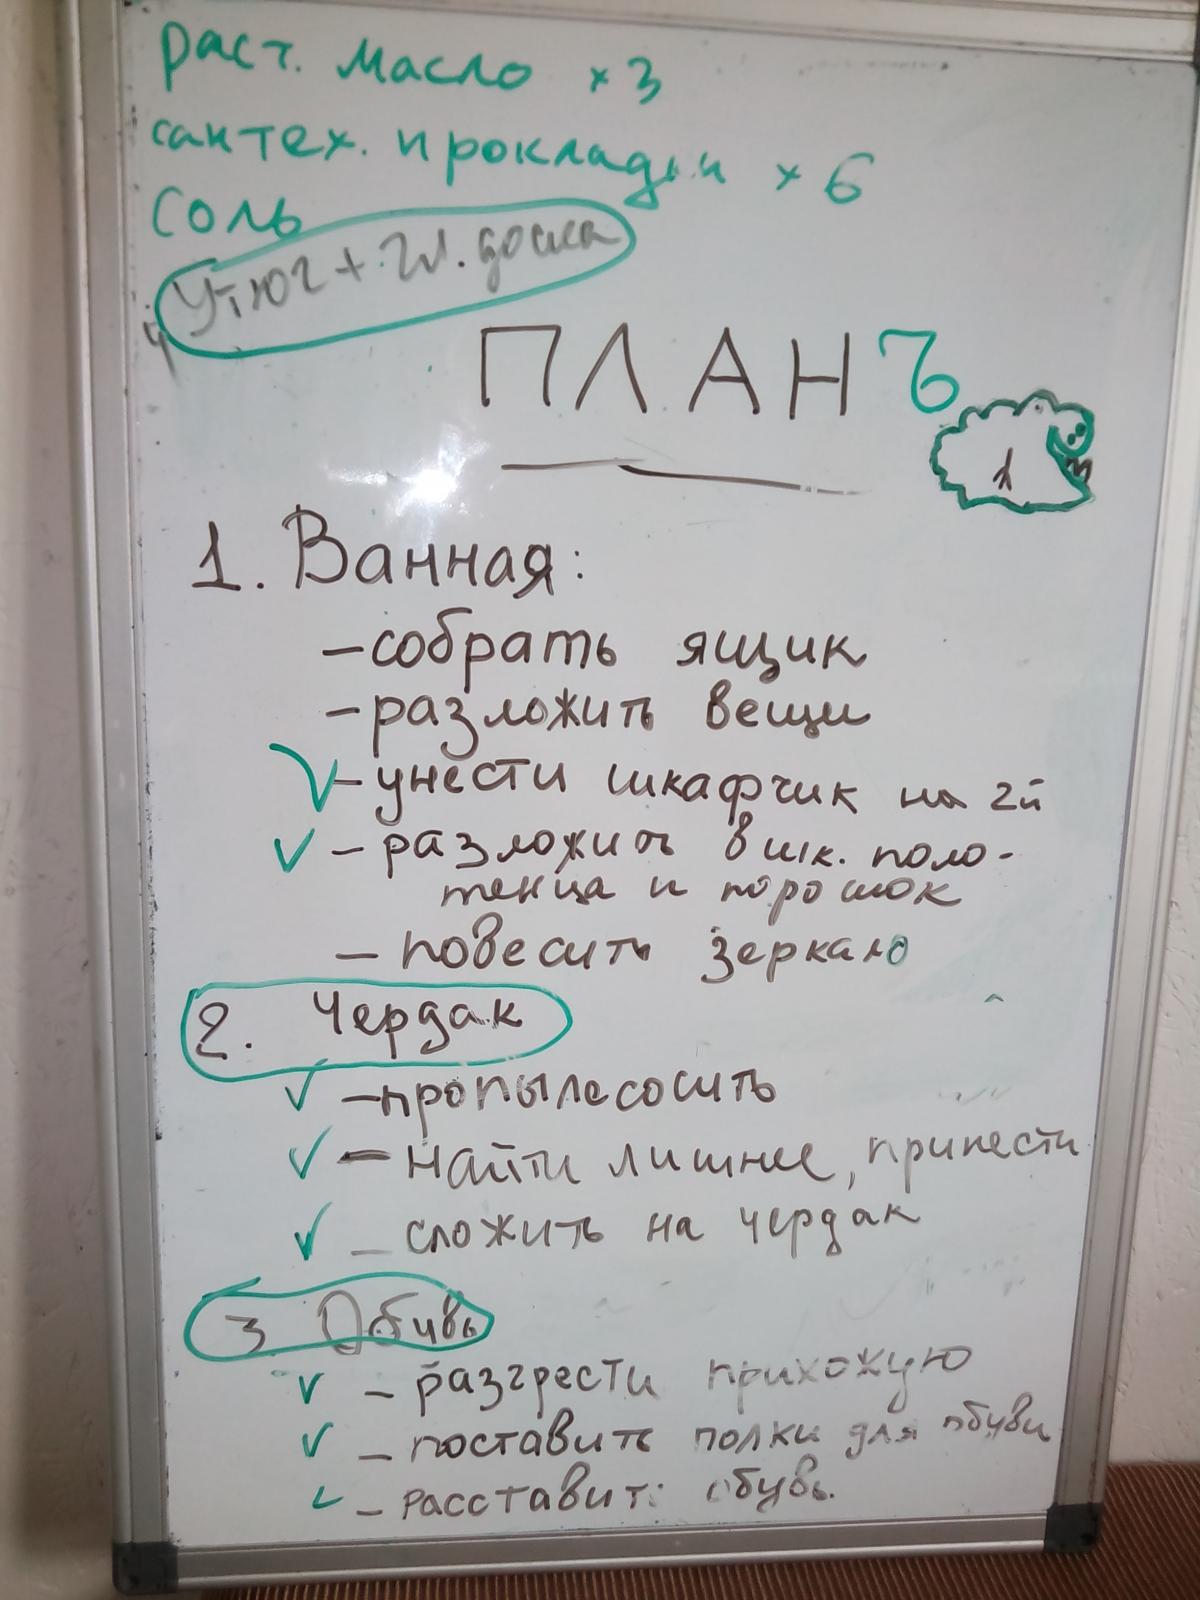 раст. масло × 3
сантех. прокладки × 6
соль
Утюг + гл. доска
ПЛАНЪ
1. Ванная:
– собрать ящик
– разложить вещи
– унести шкафчик на 2й
– разложить в шк. поло-
тенца и порошок
– повесить зеркало
2. Чердак
– пропылесосить
– найти лишнее, принести
– сложить на чердак
3 Обувь
– разгрести прихожую
– поставить полки для обуви
– расставить обувь.